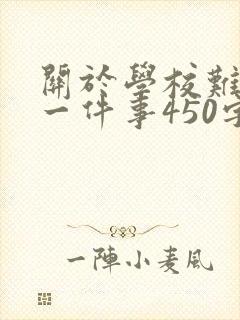 關於學校難
一件事450字
一陣小麦風